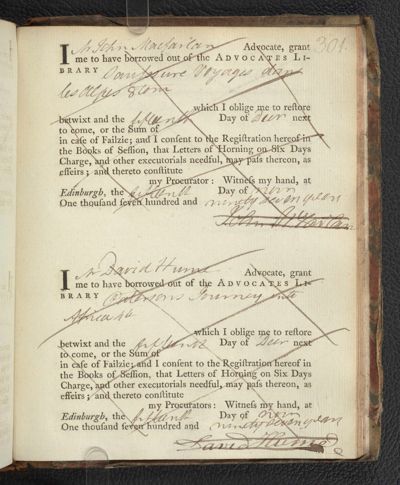 301.
I Mr John Macfarlan Advocate, grant
me to have borrowed out of the ADVOCATES LI-
BRARY Saussure Voyages dans
les Alpes 8 tom
which I oblige me to restore
betwixt and the fifteenth Day of Decr next
to come, or the Sum of
in case of Failzie; and I consent to the Registration hereof in
the Books of Session, that Letters of Horning on Six Days
Charge, and other executorials needful, may pass thereon, as
effeirs; and thereto constitute
my Procurator: Witness my hand, at
Edinburgh, the fifteenth Day of Novm
One thousand seven hundred and ninety seven years
John McFarlan
I Mr David Hume Advocate, grant
me to have borrowed out of the ADVOCATES LI-
BRARY Patersons Journey into
Africa 4to
which I oblige me to restore
betwixt and the fifteenth Day of Decr next
to come, or the Sum of
in case of Failzie; and I consent to the Registration hereof in
the Books of Session, that Letters of Horning on Six Days
Charge, and other executorials needful, may pass thereon, as
effeirs; and thereto constitute
my Procurators: Witness my hand, at
Edinburgh, the fifteenth Day of Novm
One thousand seven hundred and ninety seven years
David Hume